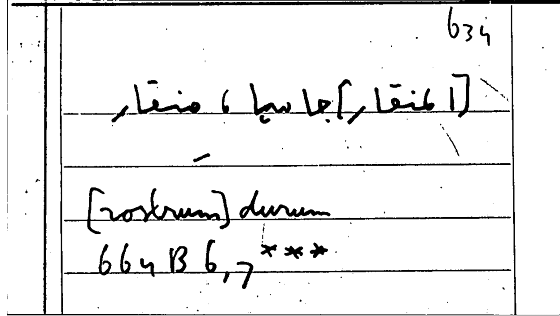 634
[المنقار] جاسيا ، منقار
[rostrum] durum
664 B 6,7 ***